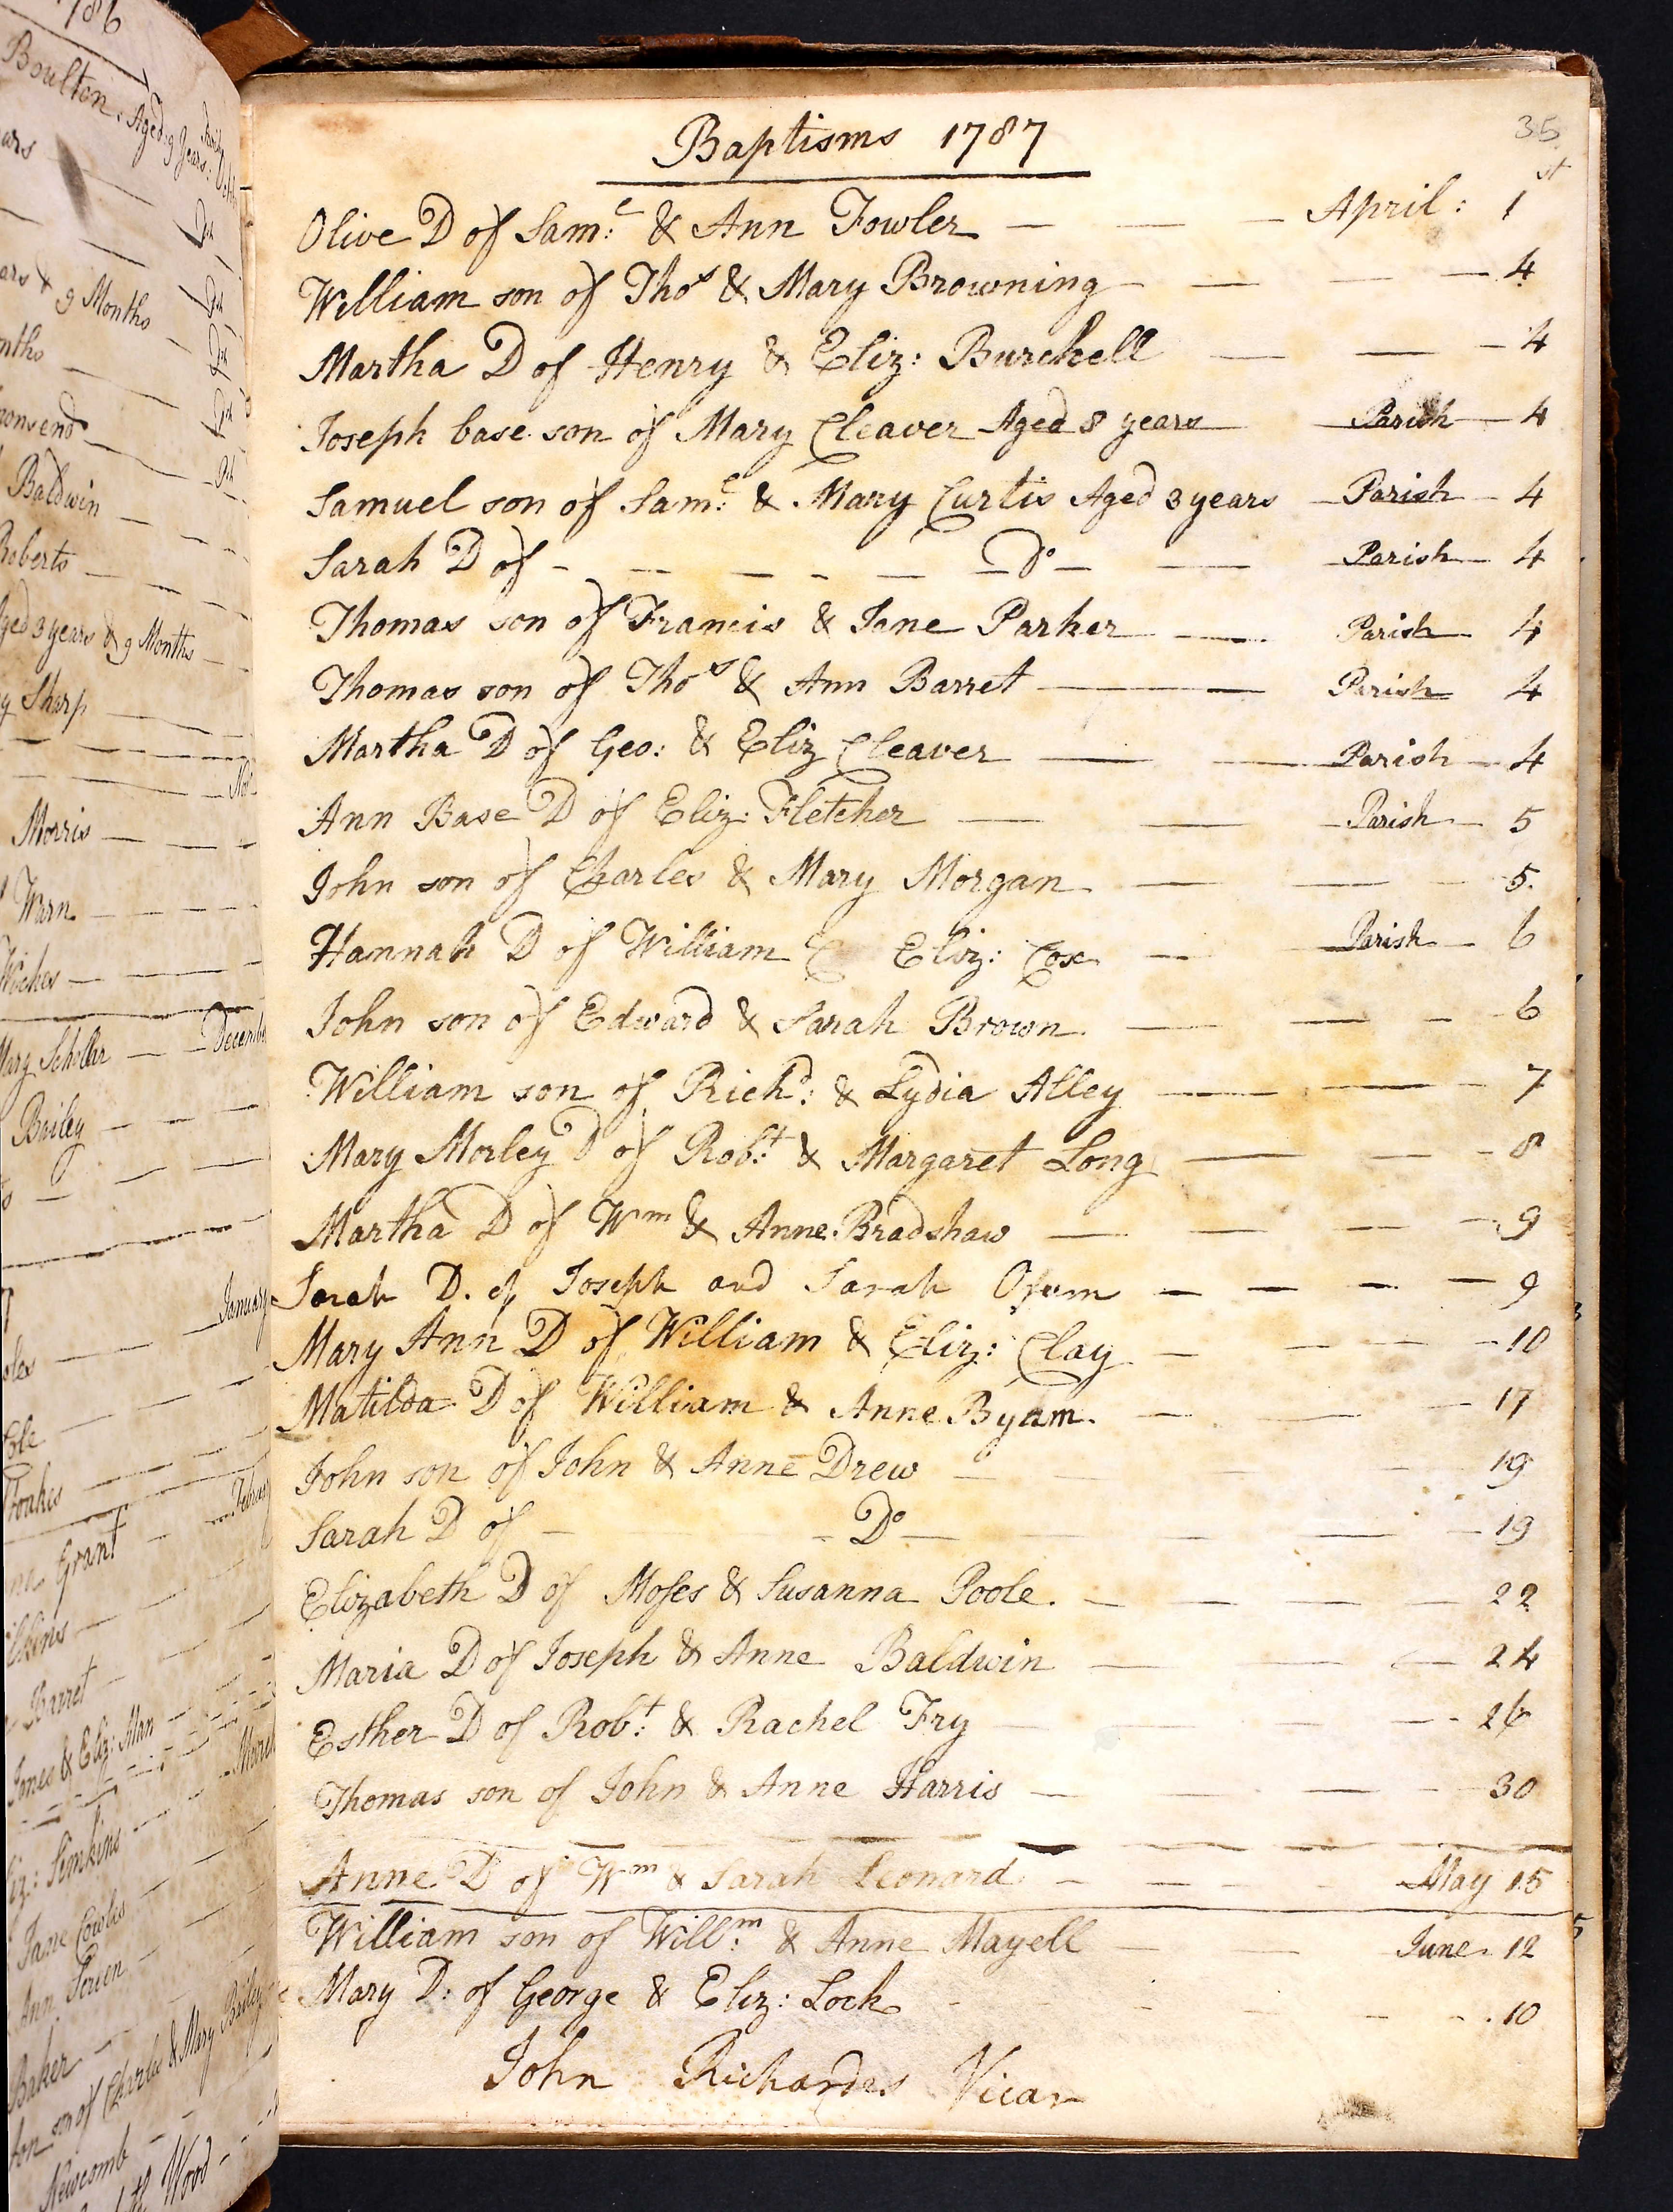 1786
Boulton. Aged 9 Years:
ars
ars & 9 Months
nths
Baldwin
Roberts
Aged 3 years & 9 Months
Sharp
Morris
Warn
Mary Scholar December
Bailey
January
Cole
Grant
Barret
Jones & Eliz: Man
Eliz: Simkins
Jane Cowles
Ann
Baker
son of Charles & Mary Bailey
Newcomb
Wood
35
Baptisms 1787
Olive D of Sam:l & Ann Fowler April: 1st
William son of Thos & Mary Browning 4
Martha D of Henry & Eliz: Burchell 4
Joseph base son of Mary Cleaver Aged 8 years Parish 4
Samuel son of Sam:l & Mary Curtis Aged 3 years Parish 4
Sarah D of Do Parish 4
Thomas son of Francis & Jane Parker Parish 4
Thomas son of Thos & Ann Barret Parish 4
Martha D of Geo: & Eliz Cleaver Parish 4
Ann Base D of Eliz: Fletcher Parish 5
John son of Charles & Mary Morgan 5.
Hannah D of William & Eliz: Cox Parish 6
John son of Edward & Sarah Brown. 6
William son of Richd: & Lydia Alley 7
Mary Morley D of Rob:t & Margaret Long 8
Martha D of Wm & Anne Bradshaw 9
Sarah D. of Joseph and Sarah 9
Mary Ann D of William & Eliz: Clay 10
Matilda D of William & Anne Byam. 17
John son of John & Anne Drew 19
Sarah D of Do 19
Elizabeth D of Moses & Susanna Poole. 22
Maria D of Joseph & Anne Baldwin 24
Esther D of Rob:t & Rachel Fry 26
Thomas son of John & Anne Harris 30
Anne D of Wm & Sarah Leonard May 15
William son of Will:m & Anne Mayell June 12
Mary D: of George & Eliz: Lock 10
John Richardes Vicar